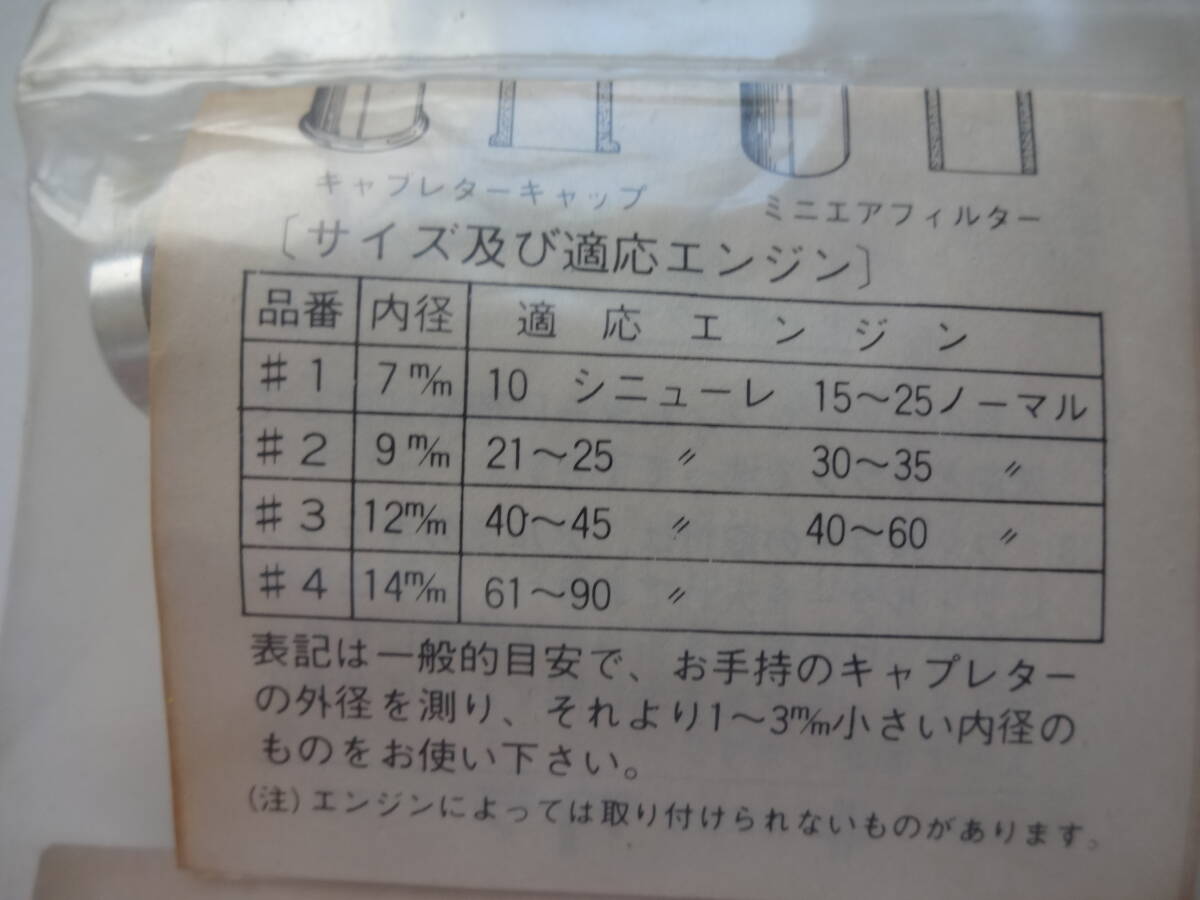 キャブレターキャップ
ミニエアフィルター
〔サイズ及び適応エンジン〕
品番 内径 適応エンジン
♯1 7m/m 10 シニューレ 15～25ノーマル
♯2 9m/m 21～25 〃 30～35 〃
♯3 12m/m 40～45 〃 40～60 〃
♯4 14m/m 61～90 〃
表記は一般的目安で、お手持のキャブレター
の外径を測り、それより1～3m/m小さい内径の
ものをお使い下さい。
(注)エンジンによっては取り付けられないものがあります。